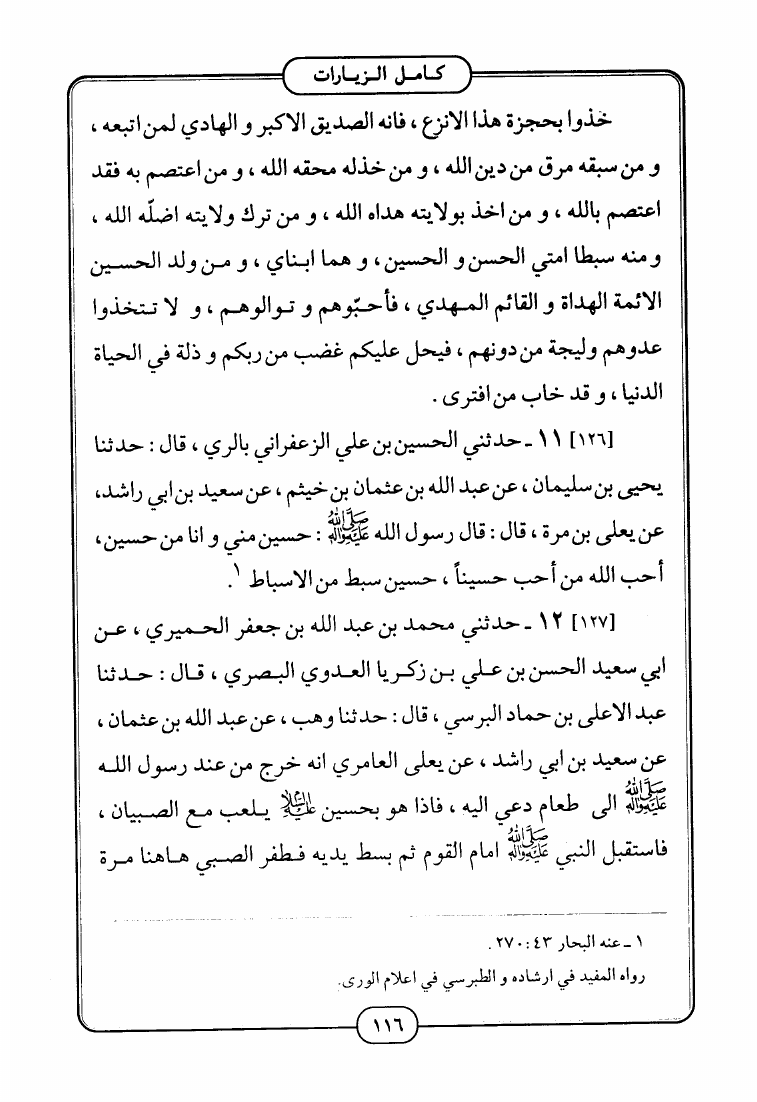 كامل الزيارات
خذوا بحجزة هذا الانزع ، فانه الصديق الاكبر و الهادي لمن اتبعه ،
و من سبقه مرق من دين الله ، و من خذله محقه الله ، و من اعتصم به فقد
اعتصم بالله ، و من اخذ بولايته هداه الله ، و من ترك ولايته اضلّه الله ،
و منه سبطا امتي الحسن و الحسين ، و هما ابناي ، و من ولد الحسين
الائمة الهداة و القائم المهدي ، فأحبّوهم و توالوهم ، و لا تتخذوا
عدوهم وليجة من دونهم ، فيحل عليكم غضب من ربكم و ذلة في الحياة
الدنيا ، و قد خاب من افترى .
[١٢٦] ١١ ـ حدثني الحسين بن علي الزعفراني بالري ، قال : حدثنا
يحيى بن سليمان ، عن عبد الله بن عثمان بن خيثم ، عن سعيد بن ابي راشد،
عن يعلى بن مرة ، قال : قال رسول الله ﷺ : حسين مني و انا من حسين،
أحب الله من أحب حسيناً ، حسين سبط من الاسباط ١.
[١٢٧] ١٢ ـ حدثني محمد بن عبد الله بن جعفر الحميري ، عن
ابي سعيد الحسن بن علي بن زكريا العدوي البصري ، قال : حدثنا
عبد الاعلى بن حماد البرسي ، قال : حدثنا وهب ، عن عبد الله بن عثمان ،
عن سعيد بن ابي راشد ، عن يعلى العامري انه خرج من عند رسول الله
ﷺ الى طعام دعي اليه ، فاذا هو بحسين عليه السلام يلعب مع الصبيان ،
فاستقبل النبي ﷺ امام القوم ثم بسط يديه فطفر الصبي هاهنا مرة
١ ـ عنه البحار ٤٣ : ٢٧٠ .
رواه المفيد في ارشاده و الطبرسي في اعلام الورى.
١١٦